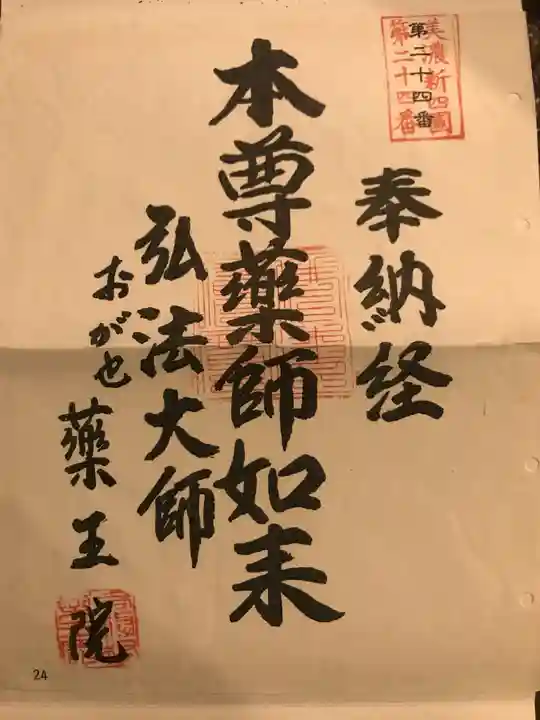 美濃新四国
第二十四番
第二十四番
奉納経
本尊薬師如来
弘法大師
おがせ薬王院
24